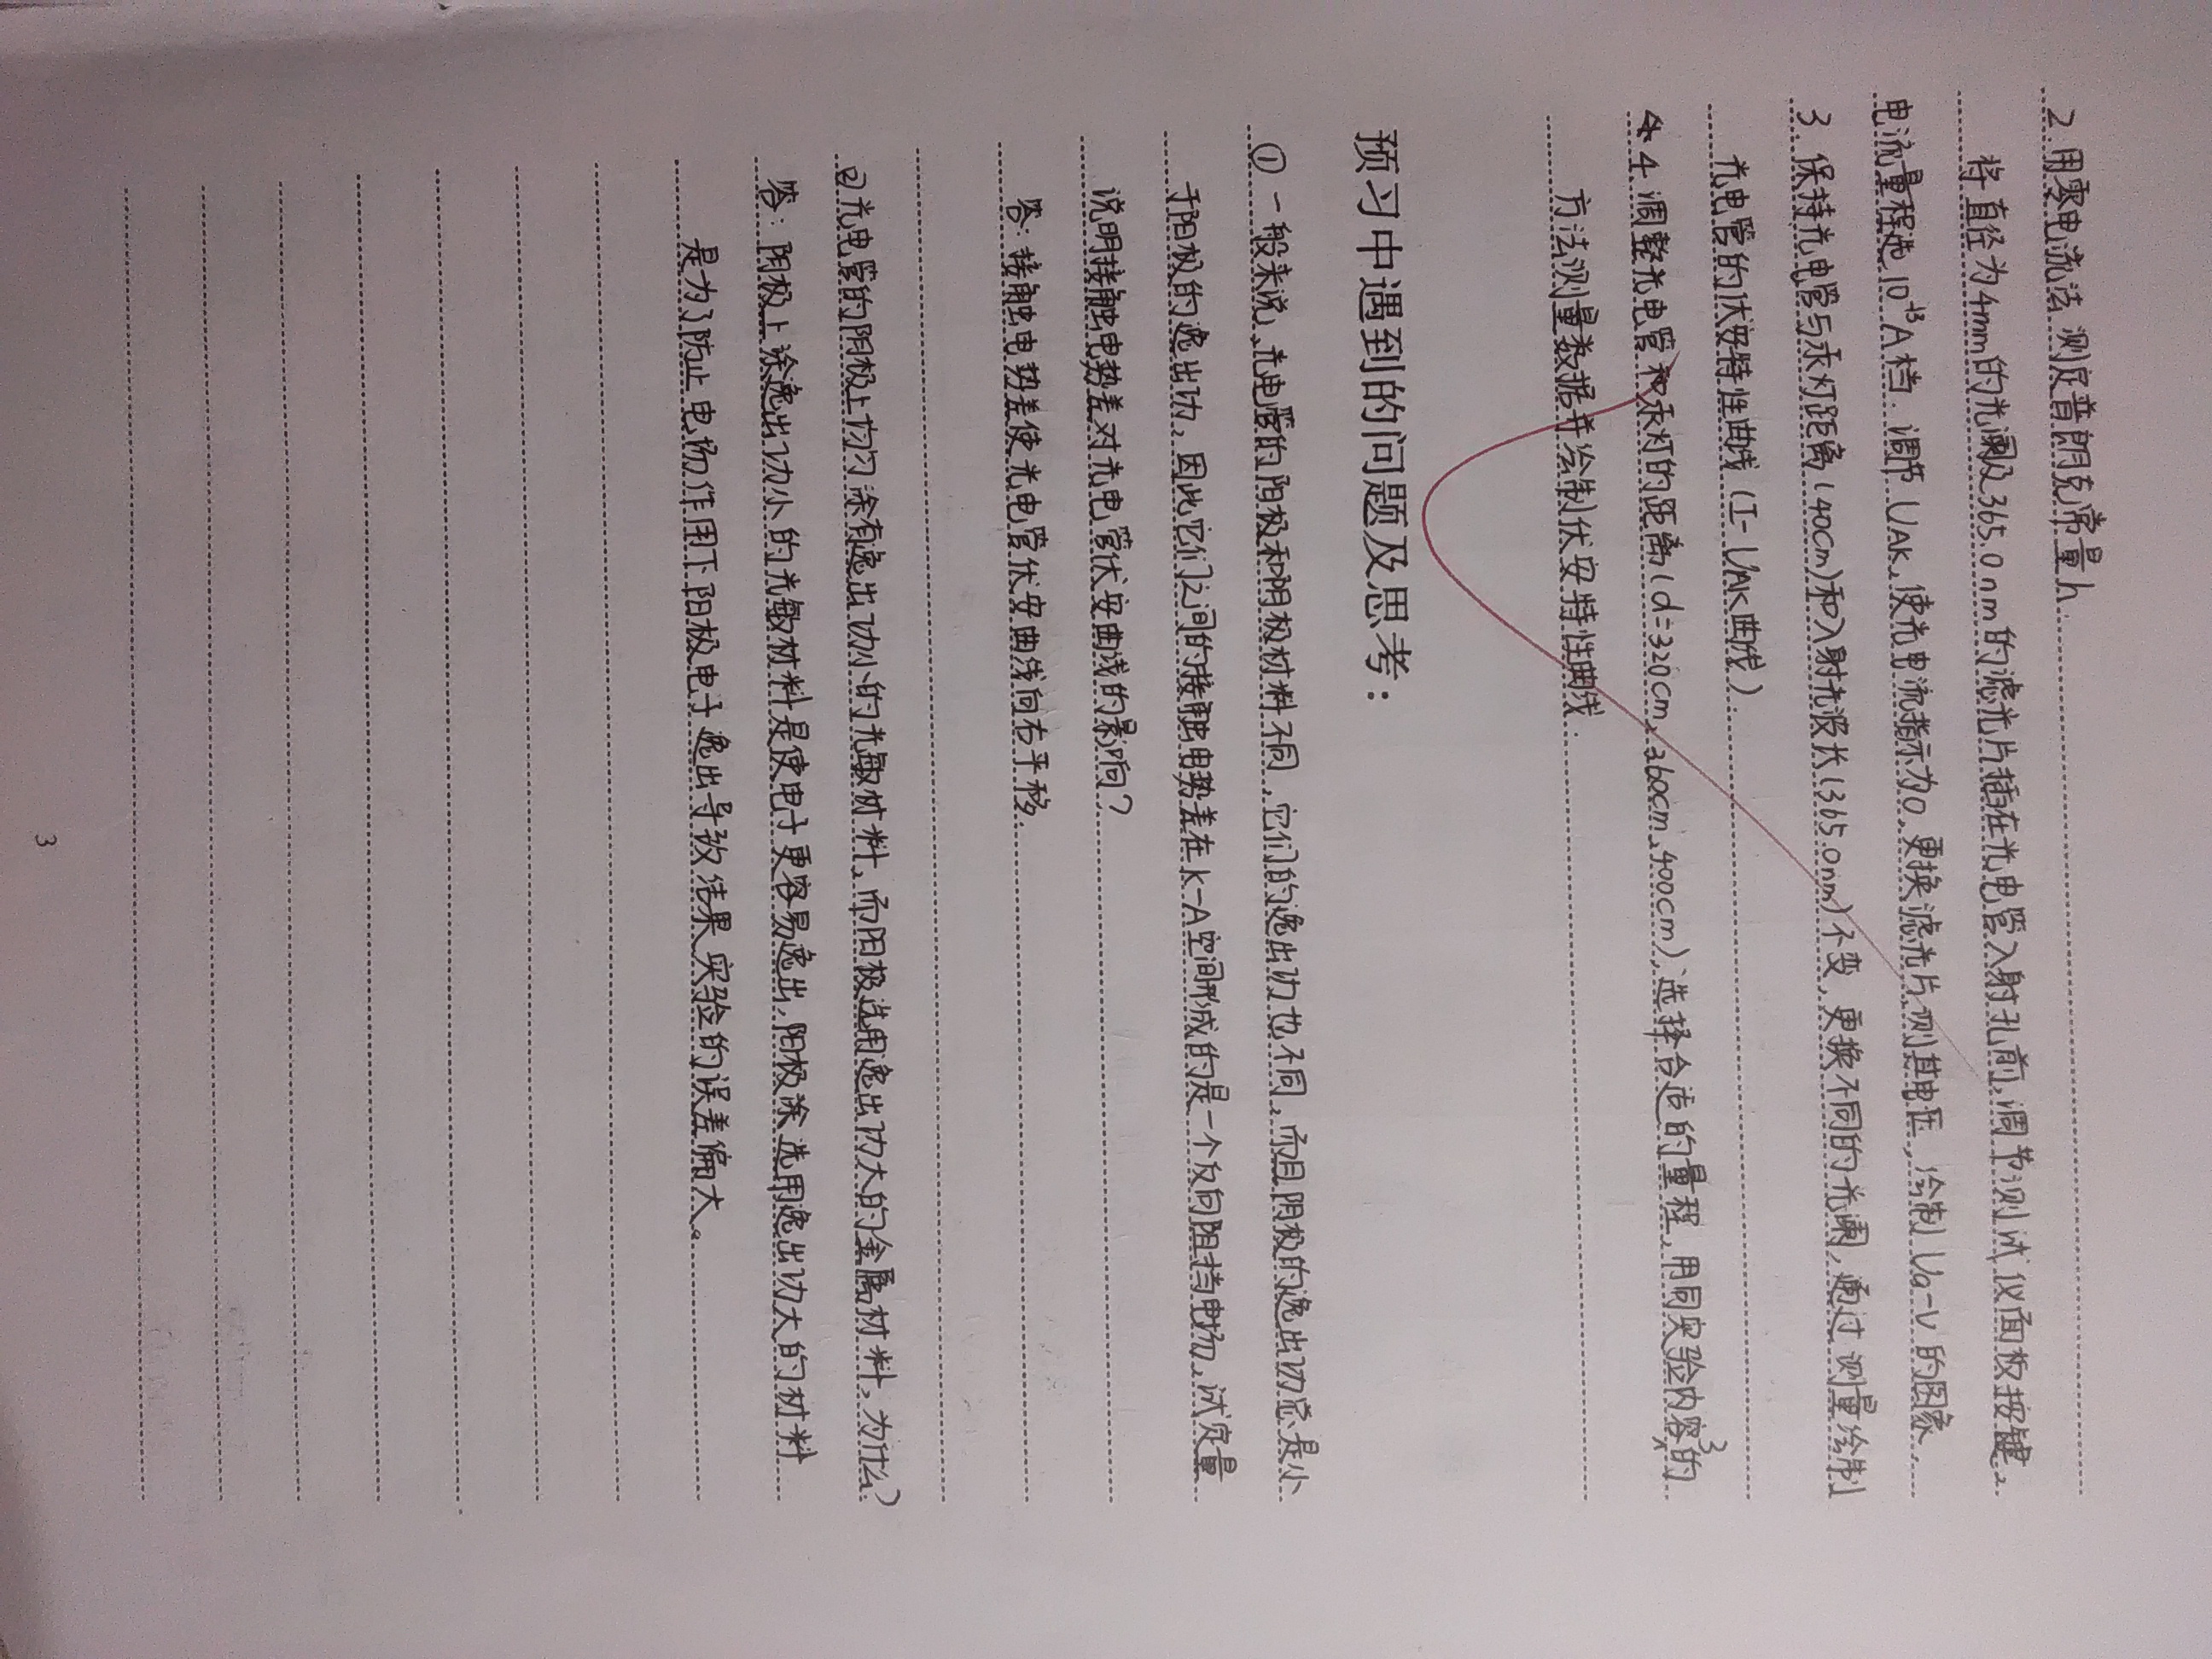 2.用零电流法测定普朗克常量h.
将直径为4mm的光阑及365.0nm的滤光片插在光电管入射孔前,调节测试仪面板按键。
电流量程选10⁻¹³A档.调节UAK,使光电流指示为0,更换滤光片测其电压,绘制Ua-ν的图象,
3.保持光电管与汞灯距离(40cm)和入射光波长(365.0nm)不变,更换不同的光阑,通过测量绘制
光电管的伏安特性曲线(I-UAK曲线)
4.调整光电管和汞灯的距离(d=320cm、360cm、400cm),选择合适的量程,用同实验内容3的
方法测量数据并绘制伏安特性曲线.
预习中遇到的问题及思考：
①一般来说、光电管的阳极和阴极材料不同,它们的逸出功也不同,而且阴极的逸出功总是小
于阳极的逸出功,因此它们之间的接触电势差在K-A空间形成的是一个反向阻挡电场,试定量
说明接触电势差对光电管伏安曲线的影响?
答:接触电势差使光电管伏安曲线向右平移.
②光电管的阴极上均匀涂有逸出功小的光敏材料,而阳极选用逸出功大的金属材料,为什么?
答:阴极上涂逸出功小的光敏材料是使电子更容易逸出,阳极涂选用逸出功大的材料
是为了防止电场作用下阳极电子逸出导致结果实验的误差偏大。
3